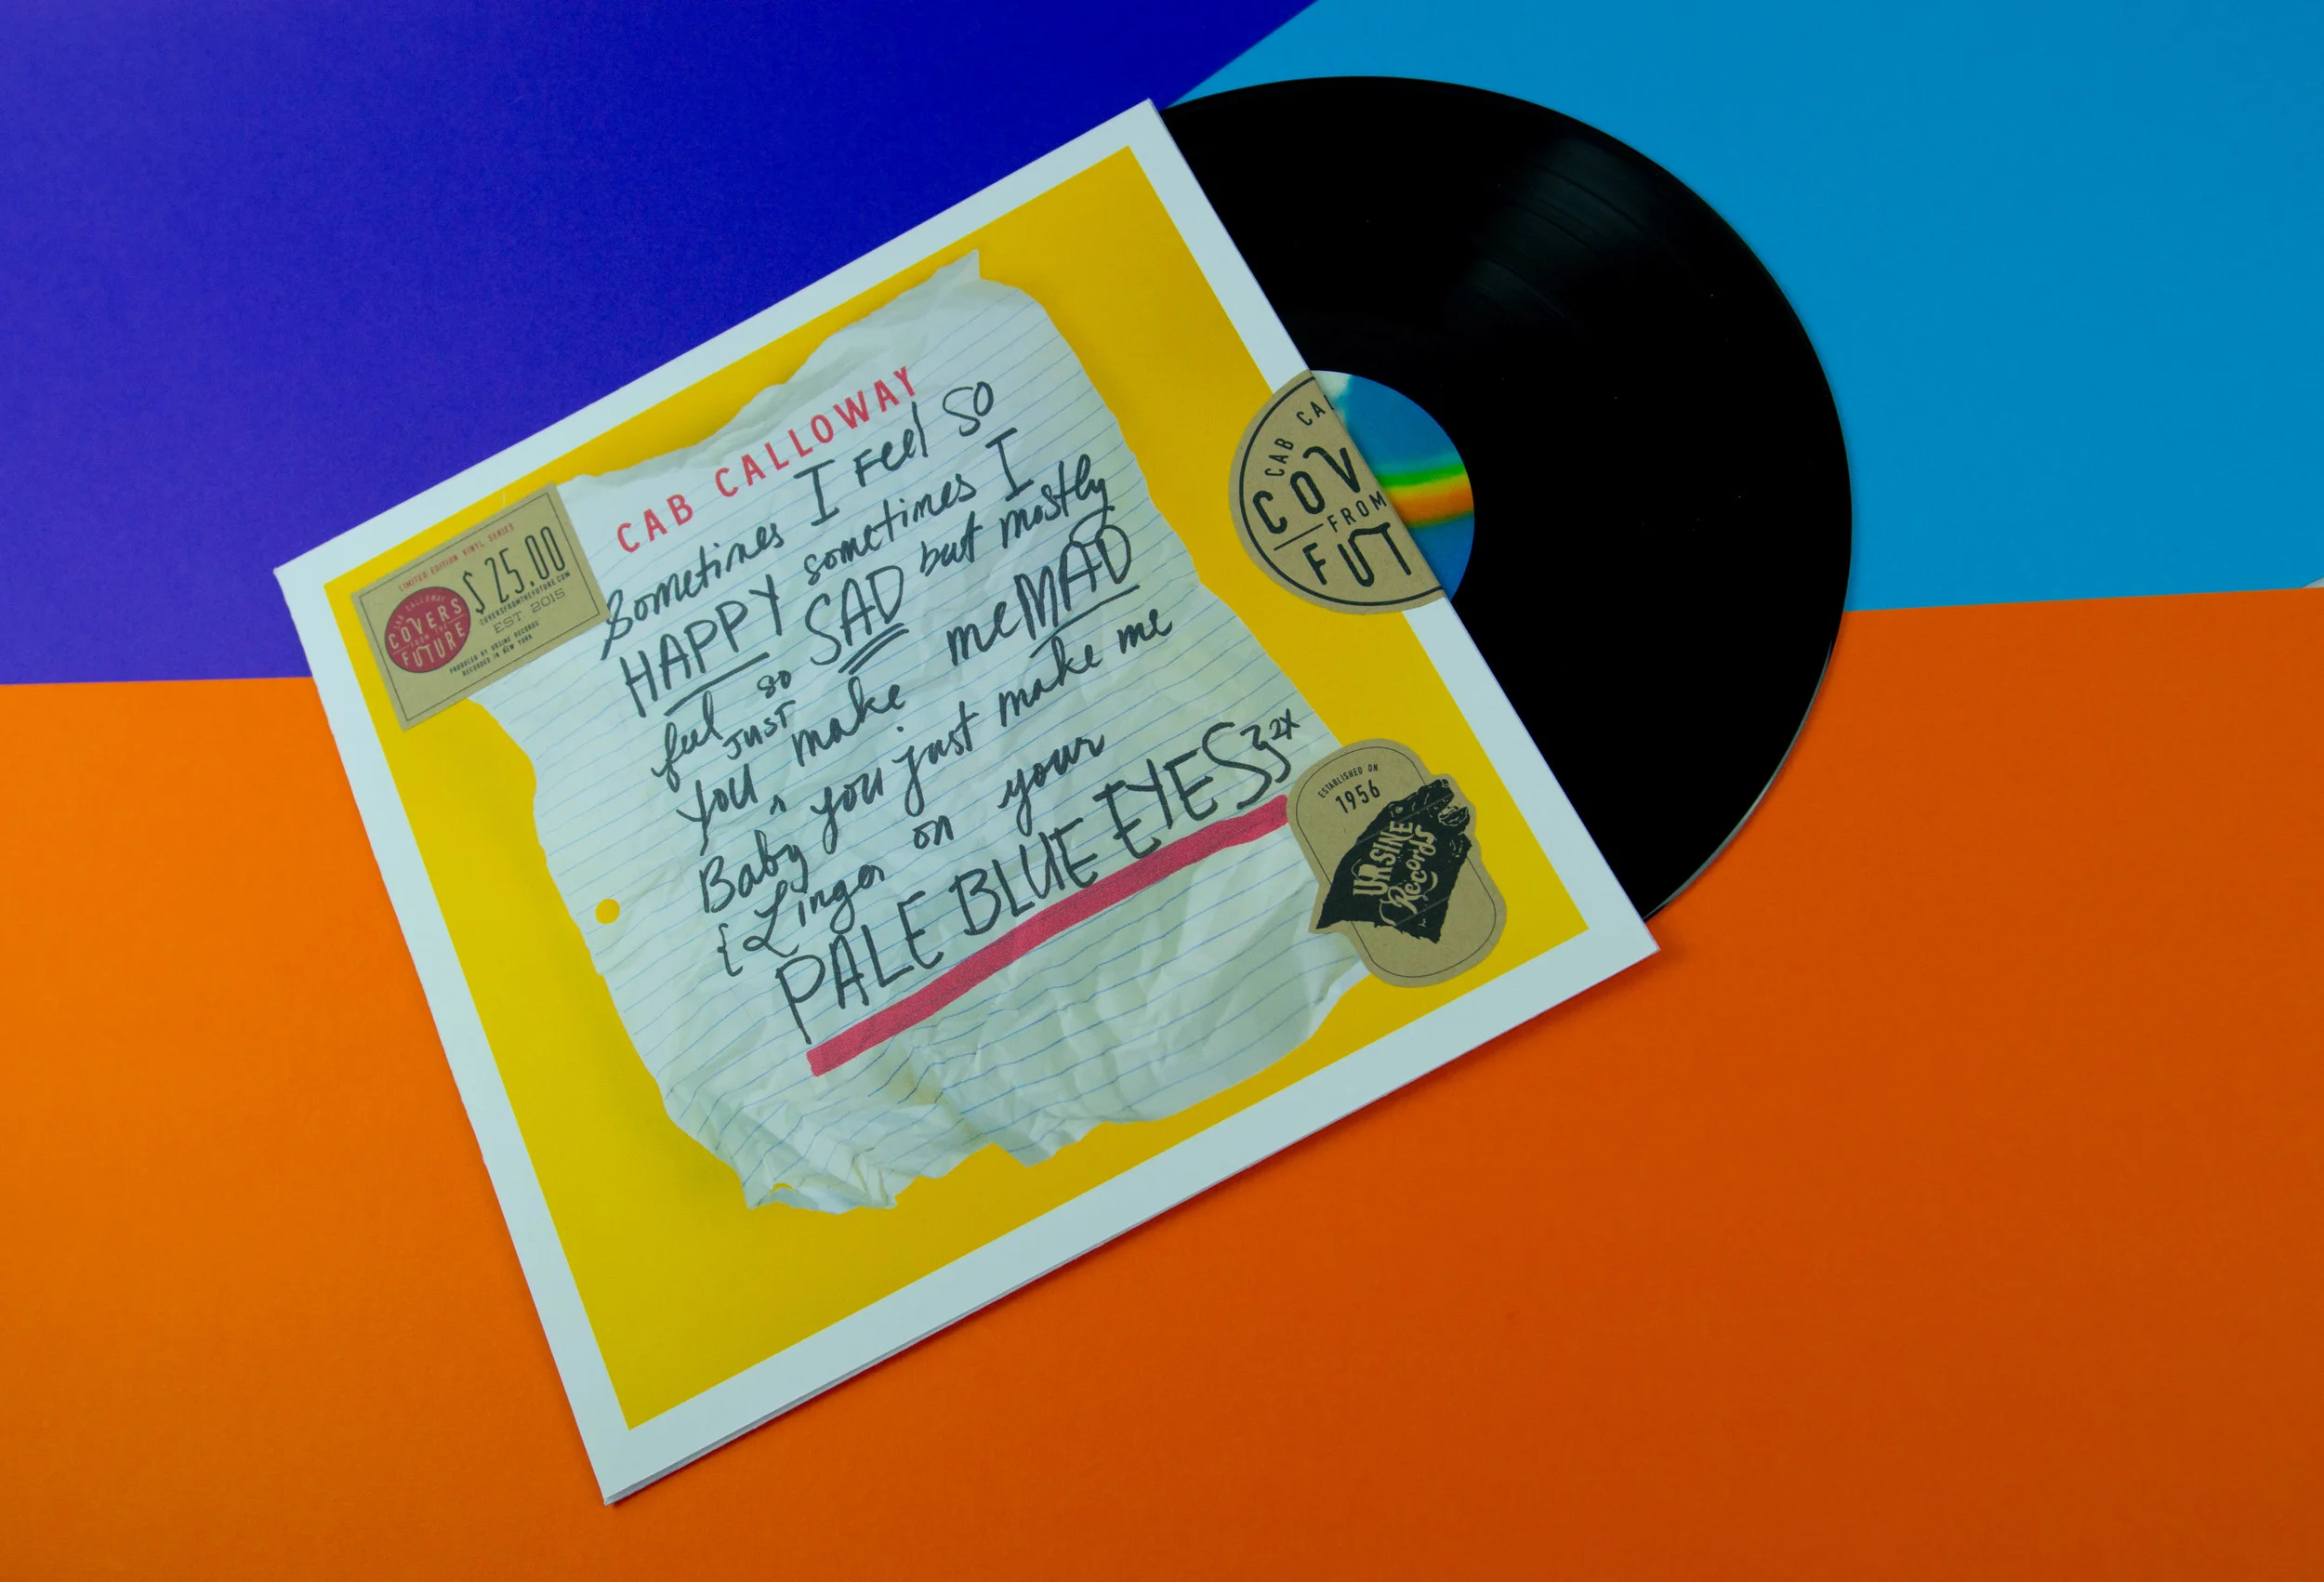 CAB CALLOWAY
Sometimes I Feel SO
HAPPY sometimes I
feel so SAD but mostly
you just make me MAD
Baby you just make me
{Linger on your
PALE BLUE EYES} 2x
LIMITED EDITION VINYL SERIES
$25.00
COVERSFROMTHEFUTURE.COM
EST 2015
PRODUCED BY URSINE RECORDS
RECORDED IN NEW YORK
CAB CALLOWAY
COVERS
FROM THE
FUTURE
CAB CAL
COV
FROM
FUT
ESTABLISHED ON
1956
URSINE
Records